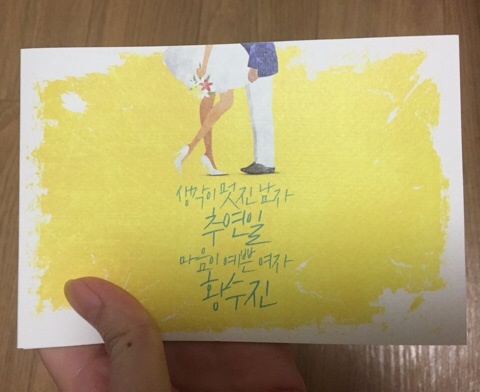 생각이 멋진 남자
추연일
마음이 예쁜 여자
황수진